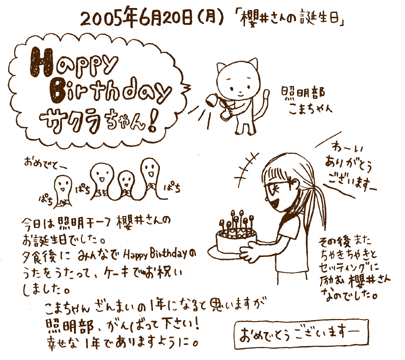 2005年6月20日(月) 「櫻井さんの誕生日」
Happy
Birthday
サクラちゃん!
照明部
こまちゃん
おめでとー
ぱち
ぱち
ぱち
わーい
ありがとう
ございますー
今日は照明チーフ櫻井さんの
お誕生日でした。
夕食後に みんなでHappy Birthdayの
うたをうたって、ケーキでお祝い
しました。
その後また
ちゃきちゃきと
セッティングに
励む櫻井さん
なのでした。
こまちゃん ざんまいの1年になると思いますが
照明部、がんばって下さい!
幸せな1年でありますように。
おめでとうございますー